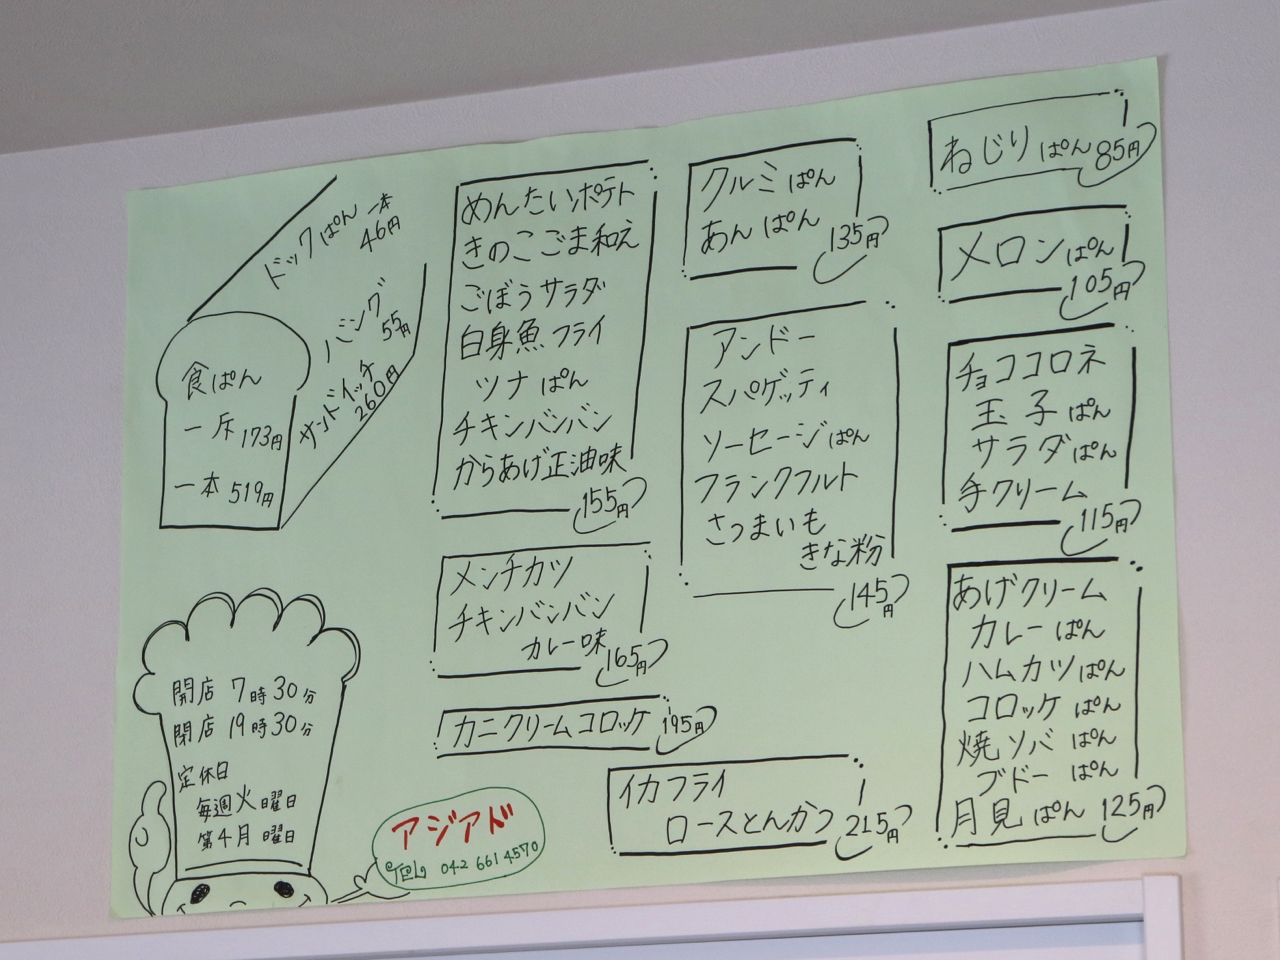 ドックぱん 一本
46円
バンズ
55円
サンドイッチ
260円
食ぱん
一斤 173円
一本 519円
開店 7時30分
閉店 19時30分
定休日
毎週火曜日
第4月曜日
アジアド
TEL 042 661 4570
めんたいポテト
きのこごま和え
ごぼうサラダ
白身魚フライ
ツナぱん
チキンバンバン
からあげ正油味
155円
メンチカツ
チキンバンバン
カレー味
165円
カニクリームコロッケ 195円
イカフライ
ロースとんかつ 215円
クルミぱん
あんぱん
135円
アンドー
スパゲッティ
ソーセージぱん
フランクフルト
さつまいも
きな粉
145円
ねじりぱん 85円
メロンぱん
105円
チョココロネ
玉子ぱん
サラダぱん
手クリーム
115円
あげクリーム
カレーぱん
ハムカツぱん
コロッケぱん
焼ソバぱん
ブドーぱん
月見ぱん 125円